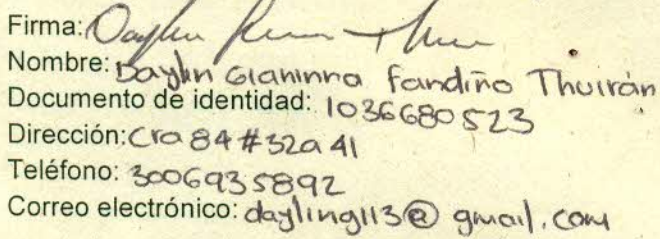 Firma:
Nombre: Daylin Gianinna Fandiño Thuirán
Documento de identidad: 1036680523
Dirección: Cra 84 #32a 41
Teléfono: 3006935892
Correo electrónico: dayling113@gmail.com